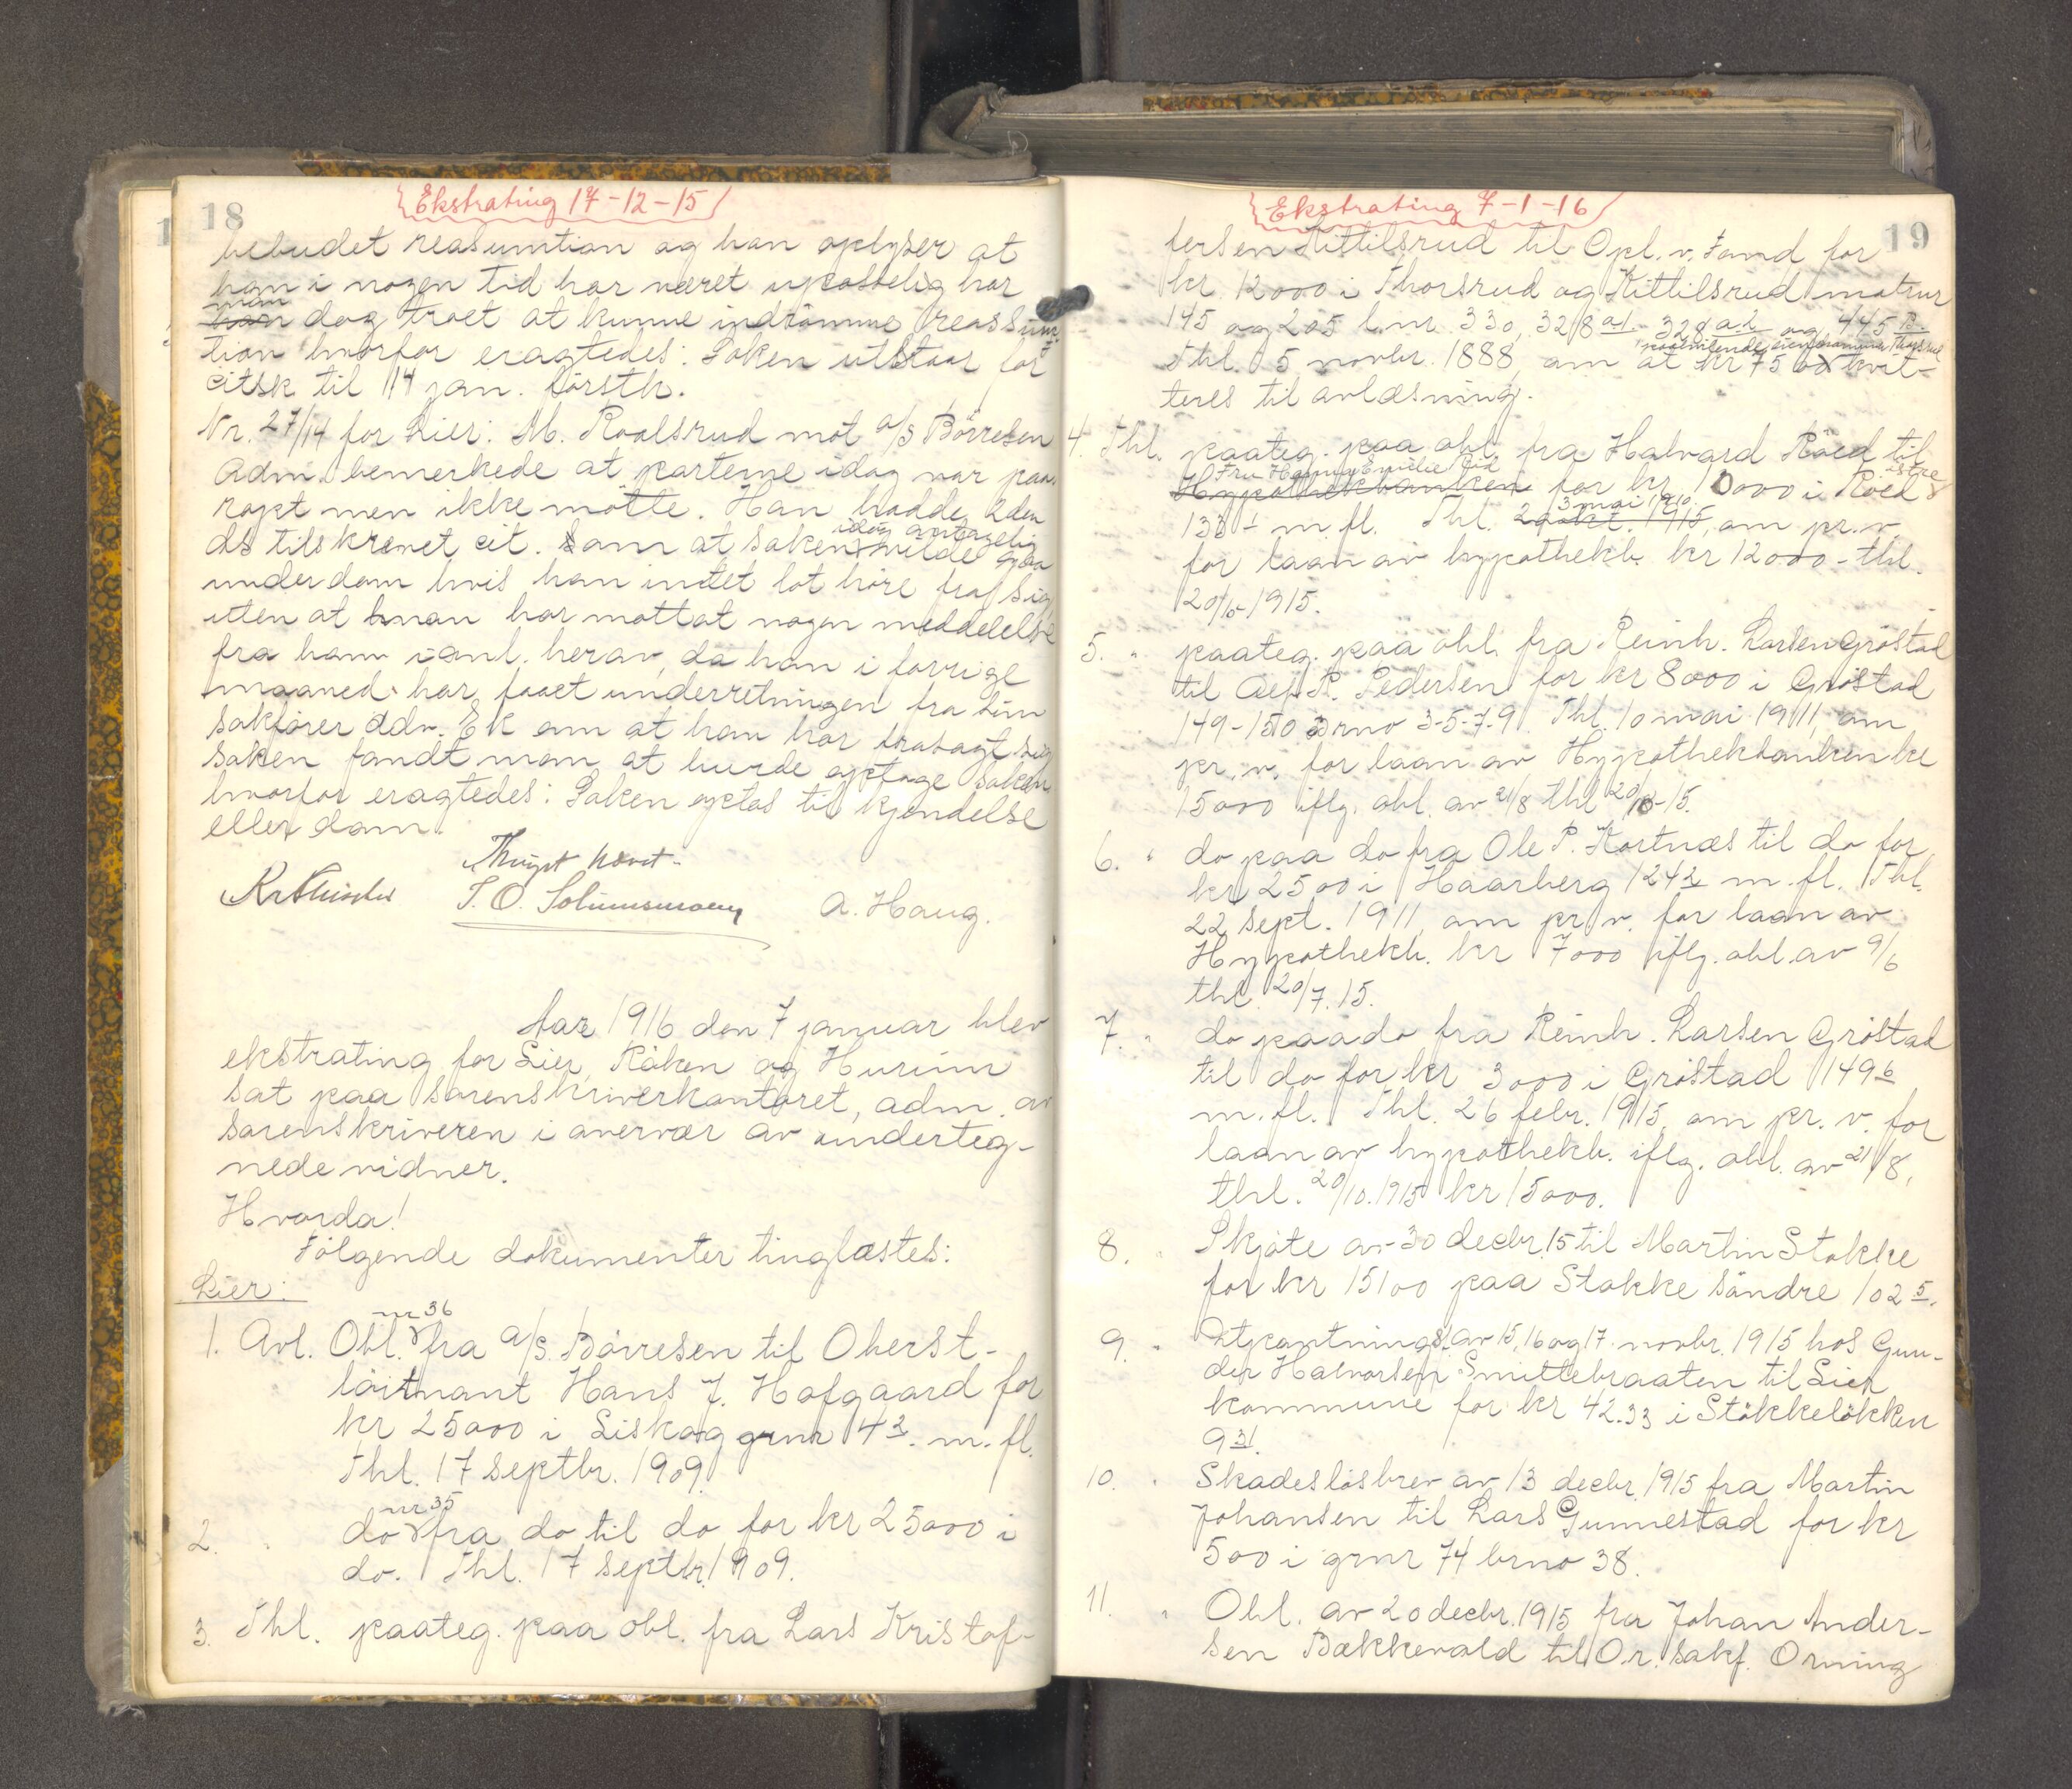 Ekstrating 17-12-15
18
bebudet reasumtion og han oplyser at
han i nogen tid har været upasselig har
man
han dog troet at kunne indrömme reassum-
tion hvorfor eragtedes: Saken utstaar for
citsk til 14 jan. förstk.
Nr. 27/14 for Lier: M. Roalsrud mot a/s Börresen
Adm. bemerkede at parterne idag var paa-
ropt men ikke mötte. Han hadde 2den
ds tilskrevet cit. om at saken vilde
idag antagelig
under dom hvis han intet lot höre fra sig
uten at man har mottat nogen meddelelse
fra ham i anl. herav, da han i forrige
maaned har faaet underretningen fra sin
sakförer adv. Ek om at han har frasagt sig
saken fandt man at burde optage saken
hvorfor eragtedes: Saken optas til kjendelse
eller dom.
A. Haug.
Aar 1916 den 7 januar blev
ekstrating for Lier, Röken og Hurum
sat paa sorenskriverkontoret, adm. av
sorenskriveren i overvær av underteg-
nede vidner.
Hvorda!
Fölgende dokumenter tinglæstes:
Lier:
nr 36
1. Avl. Obl. fra a/s. Börresen til Oberst-
löitnant Hans J. Hofgaard for
kr 25000 i Liskog grnr 43. m. fl.
Thl. 17 septbr. 1909.
nr 35
2. " do fra do til do for kr 25000 i
do. Thl. 17 septbr. 1909.
3. Thl. paateg. paa obl. fra Lars Kristof-
Ekstrating 7-1-16
19
fersen Kittilsrud til Opl. v. Fond for
kr 12000 i Thorsrud og Kittilsrud matrnr
145 og 205 l.nr. 330, 328 a1 328 a2 og 445 B.
Thl. 5 novbr. 1888, om at kr 75 00 kvit-
teres til avlæsning.
4. Thl. paateg. paa obl. fra Halvard Röed til
Hypothekbanken for kr 10000 i Röed
östre
3 mai 1910
138 1 m. fl. Thl. 20 okt. 1915, om pr. v.
for laan av hypothekb. kr 12000 - thl.
5. " paateg. paa obl. fra Reinh. Larsen Gröstad
til P. Pedersen for kr 8000 i Gröstad
149-150 brno 3-5-7-9. Thl. 10 mai 1911, om
pr. v. for laan av Hypothekbanken kr
15000 iflg. obl. av 21/8 thl 20/10-15.
6. " do paa do fra Ole P. Kortnæs til do for
kr 2500 i Haarberg 1243 m. fl. Thl.
22 sept. 1911, om pr. v. for laan av
Hypothekb. kr 7000 iflg. obl. av 9/6
thl. 20/7.15.
7. " do paa do fra Reinh. Larsen Gröstad
til do for kr 3000 i Gröstad 1496
m. fl. Thl. 26 febr. 1915, om pr. v. for
laan av hypothekb. iflg. obl. av 21/8,
thl. 20/10.1915 kr 15000.
8. " Skjöte av 30 decbr. 15 til Martin Stokke
for kr 15100 paa Stokke söndre 102 5.
9. " Utpantnings. av 15, 16 og 17 novbr. 1915 hos Gun-
der Halvorsen Smittebraaten til Lier
kommune for kr 42.33 i Stökkelökken
9 31.
10. " Skadeslösbrev av 13 decbr. 1915 fra Martin
Johansen til Lars Gunnestad for kr
500 i grnr 74 brno 38.
11. " Obl. av 20 decbr. 1915 fra Johan Ander-
sen Bækkevold til O.r. sakf. Orning